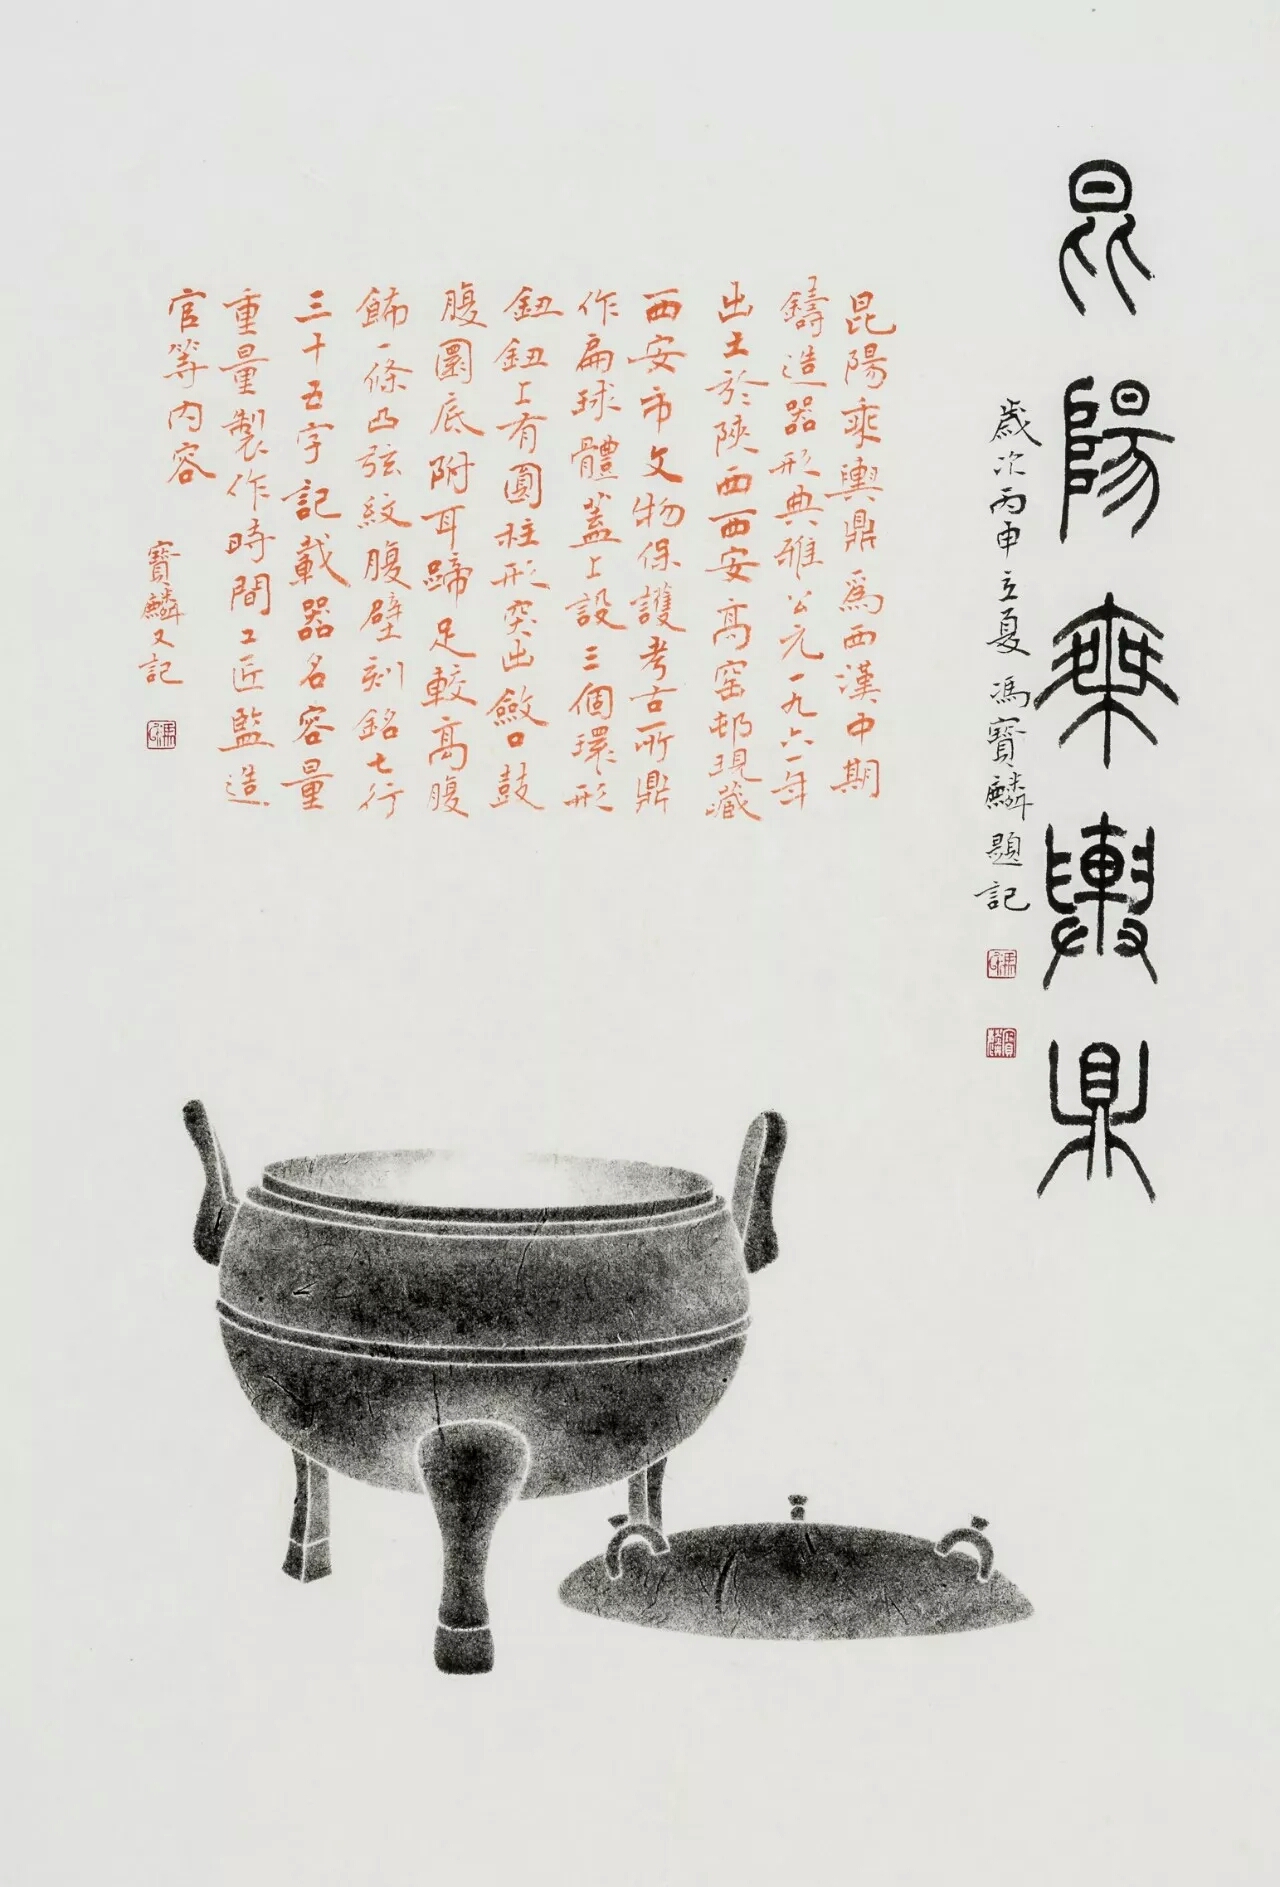 昆陽乘輿鼎
歲次丙申立夏馮寶麟題記
昆陽乘輿鼎爲西漢中期
鑄造器形典雅公元一九六一年
出土於陝西西安高窑邨現藏
西安市文物保護考古所鼎
作扁球體蓋上設三個環形
鈕鈕上有圓柱形突出斂口鼓
腹圜底附耳蹄足較高腹
飾一條凸弦紋腹壁刻銘七行
三十五字記載器名容量
重量製作時間工匠監造
官等內容
寶麟又記